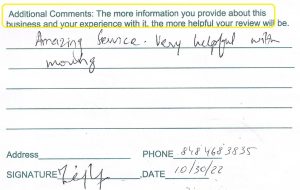 Additional Comments: The more information you provide about this
business and your experience with it, the more helpful your review will be.
Amazing Service. Very helpful with
moving
Address PHONE 8484683835
SIGNATURE DATE 10/30/22